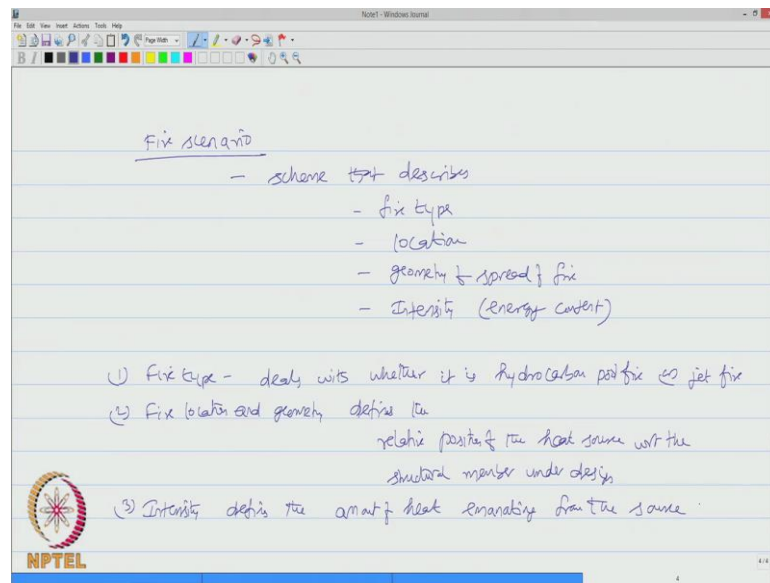 Note1 - Windows Journal
File Edit View Insert Actions Tools Help
Page Width
B I
Fire scenario
- scheme that describes
- fire type
- location
- geometry & spread of fire
- Intensity (energy content)
(1) Fire type - deals with whether it is hydrocarbon pool fire (or) jet fire
(2) Fire location and geometry defines the
relative position of the heat source wrt the
structural member under design
(3) Intensity defines the amount of heat emanating from the source.
NPTEL
4/4
4